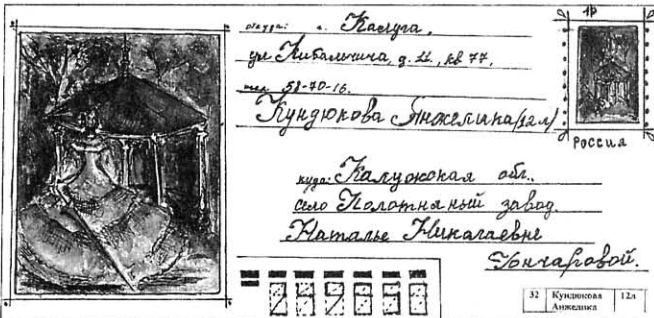 откуда: г. Калуга,
ул Кибальчича, д. 22, кв 77,
тел 52-70-16.
Кундюкова Анжелика (12 л)
РОССИЯ
куда: Калужская обл.,
село Полотняный завод.
Наталье Николаевне
Гончаровой.
32 Кундюкова Анжелика 12л